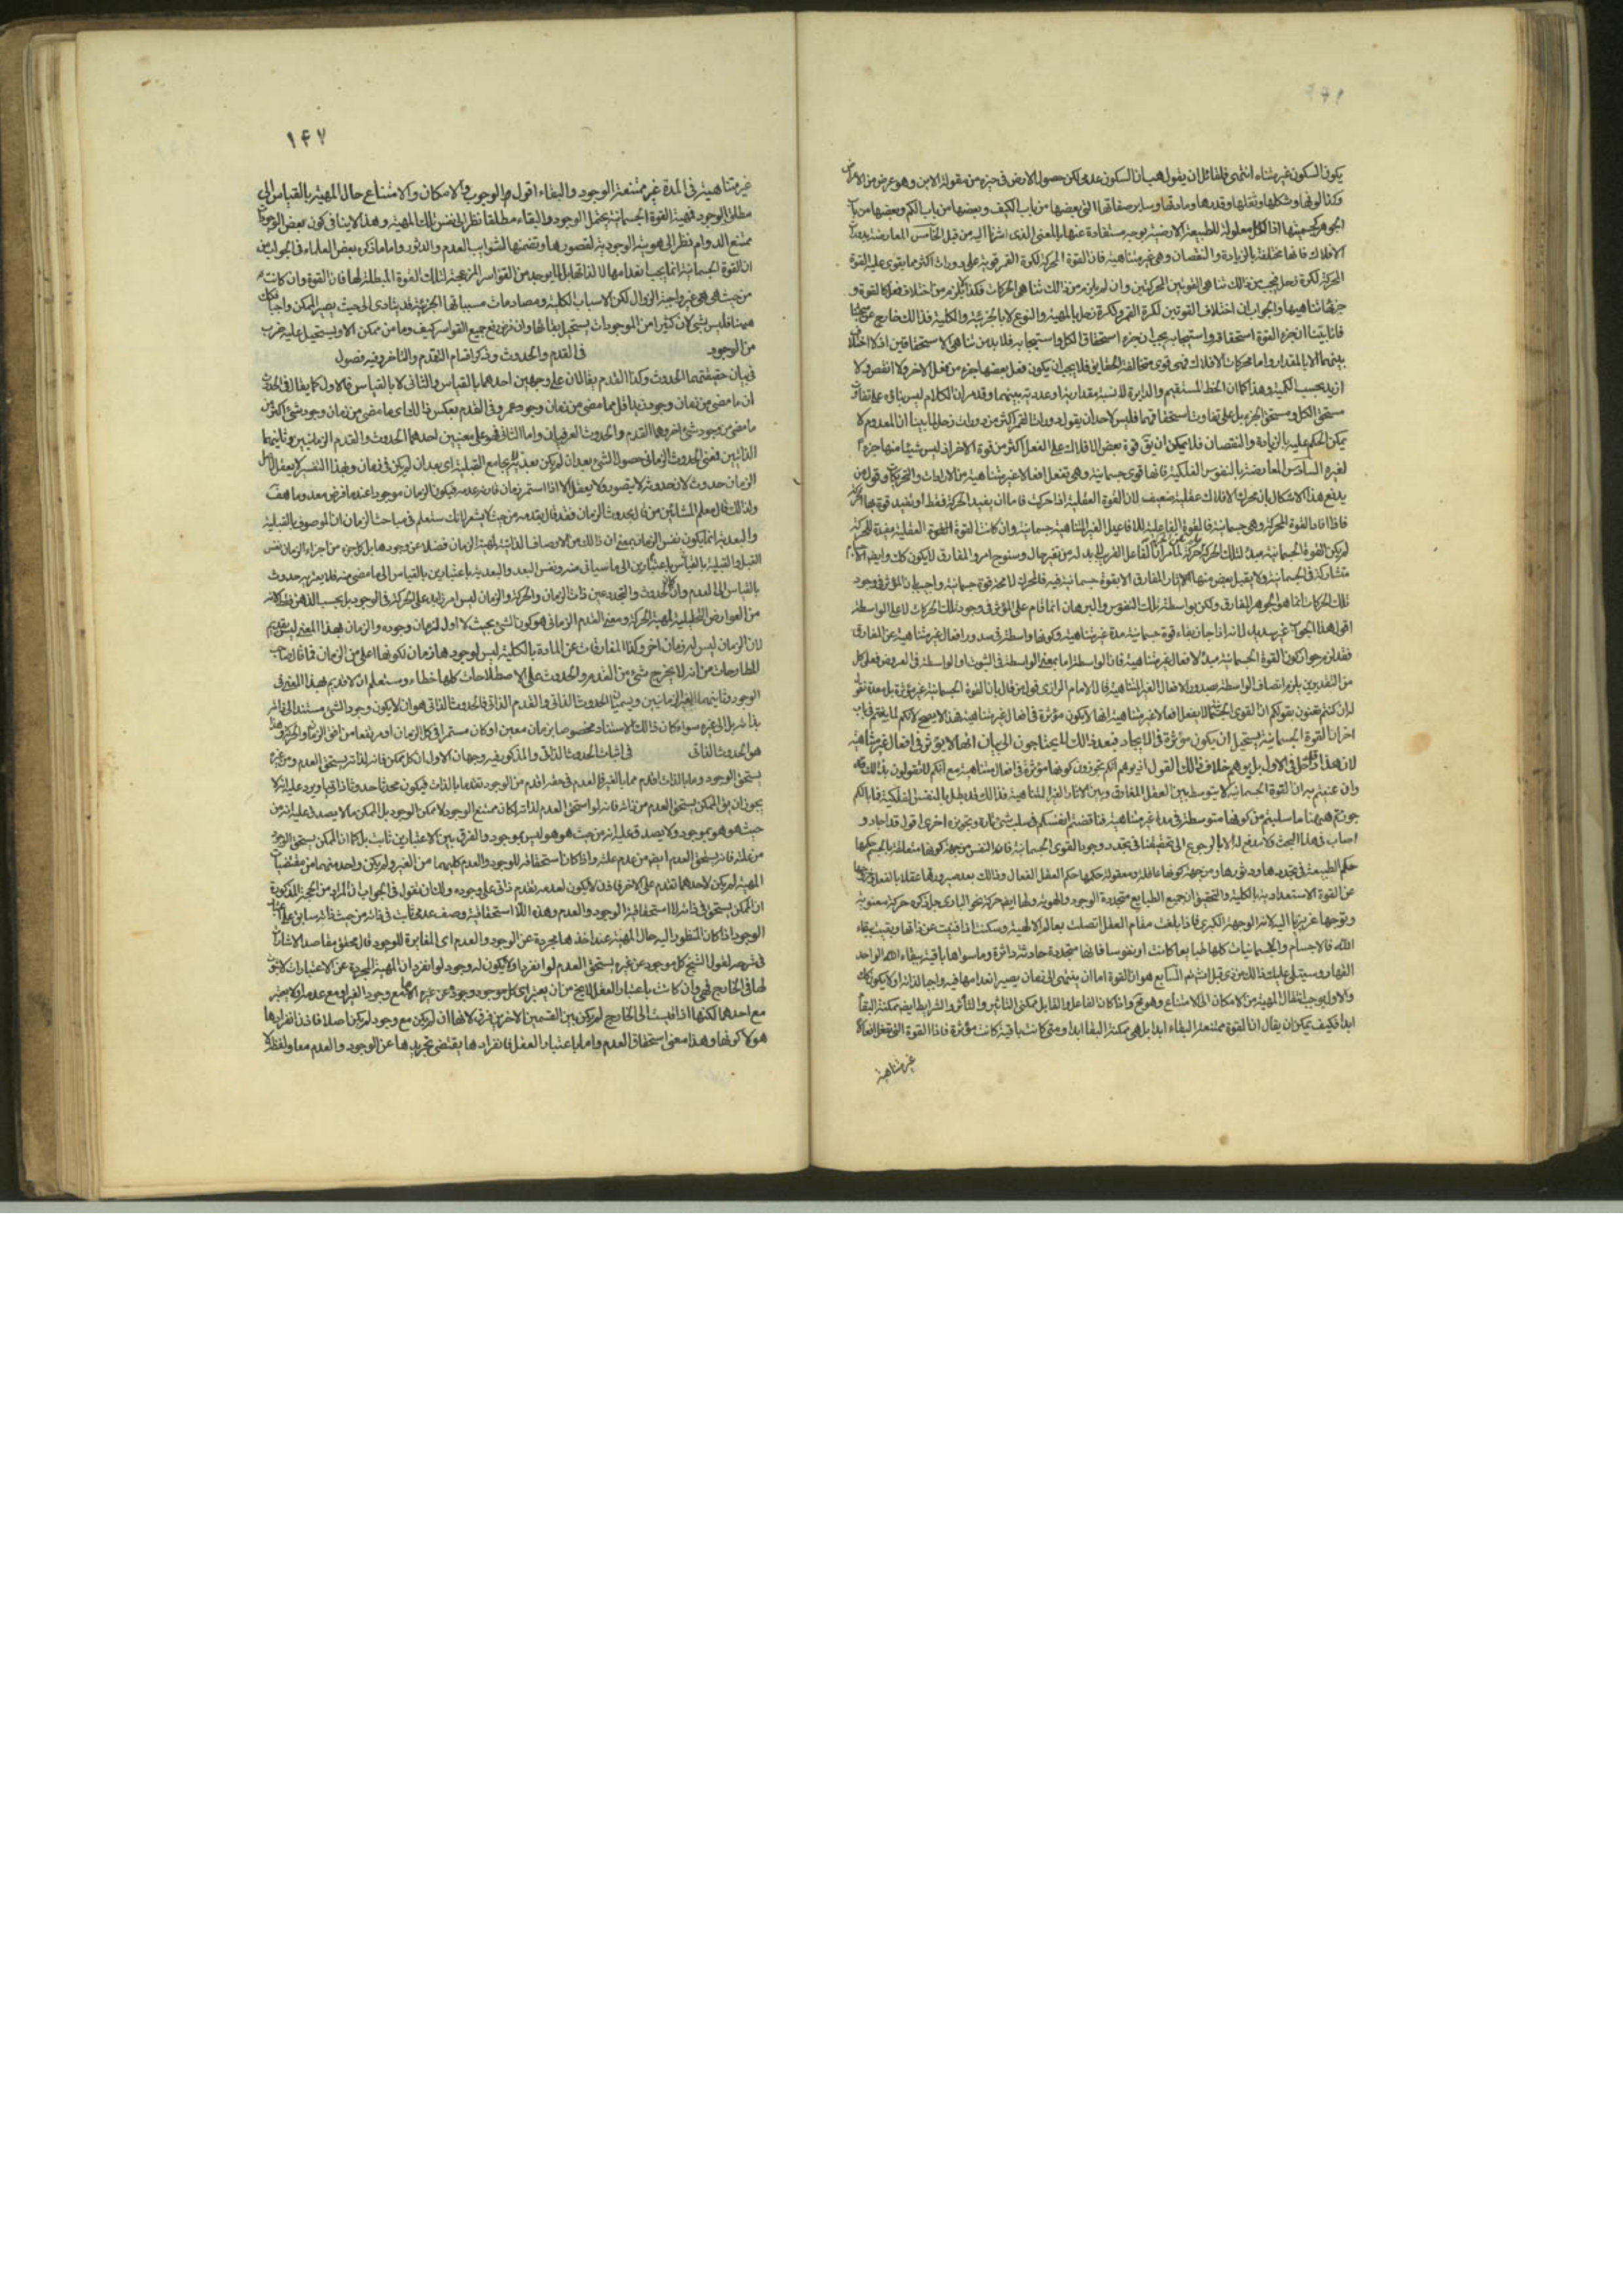 يكون السكون غير متناه انتهى فلقائل ان يقول هب ان السكون عدمى لكن حصول الارض فى حيزه من مقولة الاين وهو عرض من الاعراض
وكذا لونها وشكلها وثقلها وقدرها ومادتها وساير صفاتها التى بعضها من باب الكيف وبعضها من باب الكم وبعضها من باب
الجوهر كجسميتها اذ الكل معلولة للطبيعة الارضية بوجه مستفادة عنها بالمعنى الذى اشرنا اليه من قبل الخامس المعارضة بدورات
الافلاك فانها مختلفة بالزيادة والنقصان وهى غير متناهية فان القوة المحركة لكرة القمر قوية على دورات اكثر مما يقوى عليه القوة
المحركة لكرة زحل فيجب من ذلك تناهى القوتين المحركتين وان لم يلزم من ذلك تناهى الحركات فكذا لم يلزم من اختلاف فعل كل القوة و
جزئها تناهيها والجواب ان اختلاف القوتين لكرة القمر ولكرة زحل بالمهية والنوع لا بالجزئية والكلية فذلك خارج عن
بينهما الا بالمقدار واما محركات الافلاك فهى قوى متخالفة الحقايق فلا يجب ان يكون فعل بعضها جزء من فعل الاخر ولا انقص ولا
ازيد بحسب الكمية وهذا كما ان الخط المستقيم والدايرة لا نسبة مقدارية او عددية بينهما
مستحق الكل ومستحق الجزء بل على تفاوت استحقاقهما فليس لاحد ان يقول دورات القمر اكثر من دورات زحل لما بينا ان المعدوم لا
يمكن الحكم عليه بالزيادة والنقصان فلا يمكن ان يق قوة بعض الافلاك على الفعل اكثر من قوة الاخر اذ ليس شيئا منها جزء
لغيره السادس المعارضة بالنفوس الفلكية فانها قوى جسمانية وهى تفعل افعالا غير متناهية من الارادات والتحريكات وقول من
يدفع هذا الاشكال بان محرك الافلاك عقلية ضعيف لان القوة العقلية اذا حركت فاما ان يفيد الحركة فقط او يفيد قوة بها
فاذا افاد القوة المحركة وهى جسمانية فالقوة الفاعلية للافاعيل الغير المتناهية جسمانية وان كانت القوة العقلية مفيدة للحركة
متشاركة فى الجسمانية ولا يقبل بعض منها الاثار المفارق الا بقوة جسمانية فيه فالمحرك لا محة قوة جسمانية واجيب بان المؤثر فى وجود
تلك الحركات انما هو الجوهر المفارق ولكن بواسطة تلك النفوس والبرهان انما قام على المؤثر فى وجود تلك الحركات لا على الواسطة
اقول هذا الجواب غير سديد لانه اذا جاز بقاء قوة جسمانية مدة غير متناهية وكونها واسطة فى صدور افعال غير متناهية عن المفارق
من التقديرين يلزم اتصاف الواسطة بصدور الافعال الغير المتناهية قال الامام الرازى
اخر ان القوة الجسمانية يستحيل ان يكون مؤثرة فى الايجاد فبعد ذلك لا يحتاجون الى بيان انها لا يؤثر فى افعال غير متناهية
وان عنيتم به ان القوة الجسمانية لا يتوسط بين العقل المفارق وبين الاثار الغير المتناهية فذلك قد بطل بالنفس الفلكية فما بالكم
جوزتم هيهنا ما سلبتم من كونها متوسطة فى مدة غير متناهية فناقضتم انفسكم فى سلب شئ تارة وتجويزه اخرى اقول قد اجاد و
اصاب فى هذا البحث ولا مدفع له الا بالرجوع الى تحقيقنا فى تجدد وجود القوى الجسمانية فان النفس من جهة كونها متعلقة بالجسم حكمها
حكم الطبيعة فى تجددها ودثورها ومن جهة كونها عاقلة ومعقولة حكمها حكم العقل الفعال وذلك بعد صيرورتها عقلا بالفعل
عن القوة الاستعدادية بالكلية والتحقيق ان جميع الطبايع متجددة الوجود والهوية ولها ايضا حركة نحو البارى جل ذكره حركة معنوية
وتوجها غريزيا اليه لانه الوجهة الكبرى فاذا بلغت مقام العقل اتصلت بعالم الالهية وسكنت اذا فنيت عن ذاتها وبقيت ببقاء
الله فالاجسام والجسمانيات كلها طبايعا كانت او نفوسا فانها متجددة حادثة داثرة وما سواها باقية ببقاء الله الواحد
القهار وسيتلى عليك ذلك من ذى قبل انش تم السابع هو ان القوة اما ان ينتهى الى زمان يصير انعدامها فيه واجبا لذاته او لا يكون كك
والاول يوجب انتقال المهية من الامكان الى الامتناع وهو مح واذا كان الفاعل والقابل ممكنى التاثير والتاثر والشرايط ايضا ممكنة البقاء
ابدا فكيف يمكن ان يقال ان القوة ممتنعة البقاء ابدا بل هى ممكنة البقاء ابدا ومتى كانت باقية كانت مؤثرة فاذا القوة التى تفعل افعالا
غير متناهية
١٤٧
غير متناهية فى المدة غير ممتنعة الوجود والبقاء اقول الوجوب والامكان والامتناع حال المهية بالقياس الى
مطلق الوجود فمهية القوة الجسمانية يحتمل الوجود والبقاء مطلقا نظرا الى نفس تلك المهية وهذا لا ينافى كون بعض الوجودات
ممتنع الدوام نظرا الى هويته الوجودية لقصورها وتضمنها لشوايب العدم والدثور واما ما ذكره بعض العلماء فى الجواب من
ان القوة الجسمانية انما يجب انعدامها لا لذاتها بل لما يوجد من القواسر المزعجة لتلك القوة المبطلة لها فان القوة وان كانت
من حيث هى هى غير واجبة الزوال لكن الاسباب الكلية ومصادمات مسبباتها الجزئية قد يتادى الى حيث يصير الممكن واجبا فكذلك
هيهنا فليس بشئ لان كثيرا من الموجودات يستحيل بقائها وان فرض رفع جميع القواسر كيف وما من ممكن الا ويستحيل عليه ضرب
من الوجود فى القدم والحدوث وذكر اقسام التقدم والتاخر وفيه فصول
فى بيان حقيقتهما الحدوث وكذا القدم يقالان على وجهين احدهما بالقياس والثانى لا بالقياس فالاول كما يقال فى الحدوث
ان ما مضى من زمان وجود زيد اقل مما مضى من زمان وجود عمرو وفى القدم بعكس ذلك اى ما مضى من زمان وجود شئ اكثر من
ما مضى من وجود شئ اخر وهما القدم والحدوث العرفيان واما الثانى فهو على معنيين احدهما الحدوث والقدم الزمانيين وثانيهما
الذاتيين فمعنى الحدوث الزمانى حصول الشئ بعد ان لم يكن بعدية لا يجامع القبلية اى بعد ان لم يكن فى زمان وبهذا التفسير لا يعقل لاصل
الزمان حدوث لان حدوثه لا يتصور ولا يعقل الا اذا استمر زمان قارنه عدمه فيكون الزمان موجودا عندما فرض معدوما هف
ولذلك قال معلم المشائين من قال بحدوث الزمان فقد قال بقدمه من حيث لا يشعر لانك ستعلم فى مباحث الزمان ان الموصوف بالقبلية
والبعدية انما يكون نفس الزمان بمعنى ان ذلك من الاوصاف الذاتية لمهية الزمان فضلا عن وجودها بل كل جزء من اجزاء الزمان نفس
القبل والقبلية باعتبارين الى ما سياتى منه ونفس البعد والبعدية باعتبارين بالقياس الى ما مضى منه فلا يعتريه حدوث
بالقياس الى العدم وان كان الحدوث والتجدد عين ذات الزمان والحركة والزمان ليس امر زايد على الحركة فى الوجود بل بحسب الذهن فقط لانه
من العوارض التحليلية لمهية الحركة ومعنى القدم الزمانى هو كون الشئ بحيث لا اول لزمان وجوده والزمان بهذا المعنى ليس بقديم
لان الزمان ليس له زمان اخر وكذا المفارقات عن المادة بالكلية ليس لوجودها زمان لكونها اعلى من الزمان فما قال صاحب
المطارحات من انه لا يخرج شئ من القدم والحدوث على الاصطلاحات كلها خطاء وستعلم ان لا قديم بهذا المعنى فى
الوجود وثانيهما الغير الزمانيين ويسميان الحدوث الذاتى والقدم الذاتى فالحدوث الذاتى هو ان لا يكون وجود الشئ مستندا الى ذاته
بذاته بل الى غيره سواء كان ذلك الاستناد مخصوصا بزمان معين او كان مستمرا فى كل الزمان او مرتفعا من افق الزمان والحركة وهذا
هو الحدوث الذاتى فى اثبات الحدوث الذاتى والمذكور فيه وجهان الاول ان كل ممكن فانه لذاته يستحق العدم ومن غيره
يستحق الوجود وما بالذات اقدم مما بالغير فالعدم فى حقه اقدم من الوجود تقدما بالذات فيكون محدثا حدوثا ذاتيا ويرد عليه انه لا
يجوز ان يق الممكن يستحق العدم من ذاته فانه لو استحق العدم لذاته لكان ممتنع الوجود لا ممكن الوجود بل الممكن ما لا يصدق عليه انه من
حيث هو هو موجود ولا يصدق عليه انه من حيث هو هو ليس بموجود والفرق بين الاعتبارين ثابت بل كما ان الممكن يستحق الوجود
من علته فانه يستحق العدم ايضا من عدم علته واذا كان استحقاقه للوجود والعدم كليهما من الغير ولم يكن واحد منهما من مقتضيات
المهية لم يكن لاحدهما تقدم على الاخر فاذن لا يكون لعدمه تقدم ذاتى على وجوده ولك ان تقول فى الجواب ان المراد من الحجة المذكورة
ان الممكن يستحق فى ذاته لا استحقاقية الوجود والعدم وهذه اللا استحقاقية وصف عدمى ثابت فى ذاته من حيث ذاته سابق على اعتبار
الوجود اذا كان المنظور اليه حال المهية عند اخذها مجردة عن الوجود والعدم اى المغايرة للوجود قال محقق مقاصد الاشارات
فى شرحه لقول الشيخ كل موجود عن غيره يستحق العدم لو انفرد او لا يكون له وجود لو انفرد ان المهية المجردة عن الاعتبارات لا ثبوت
لها فى الخارج فهى وان كانت باعتبار العقل لا يخ من ان يعتبر اى كل موجود وجوده عن غيره اما مع وجود الغير او مع عدمه او لا يعتبر
مع احدهما لكنها اذا قيست الى الخارج لم يكن بين القسمين الاخرين فرق لانها ان لم يكن مع وجود لم يكن اصلا فاذن انفرادها
هو لا كونها وهذا معنى استحقاق العدم واما باعتبار العقل فانفرادها يقتضى تجريدها عن الوجود والعدم معا ولفظة لا